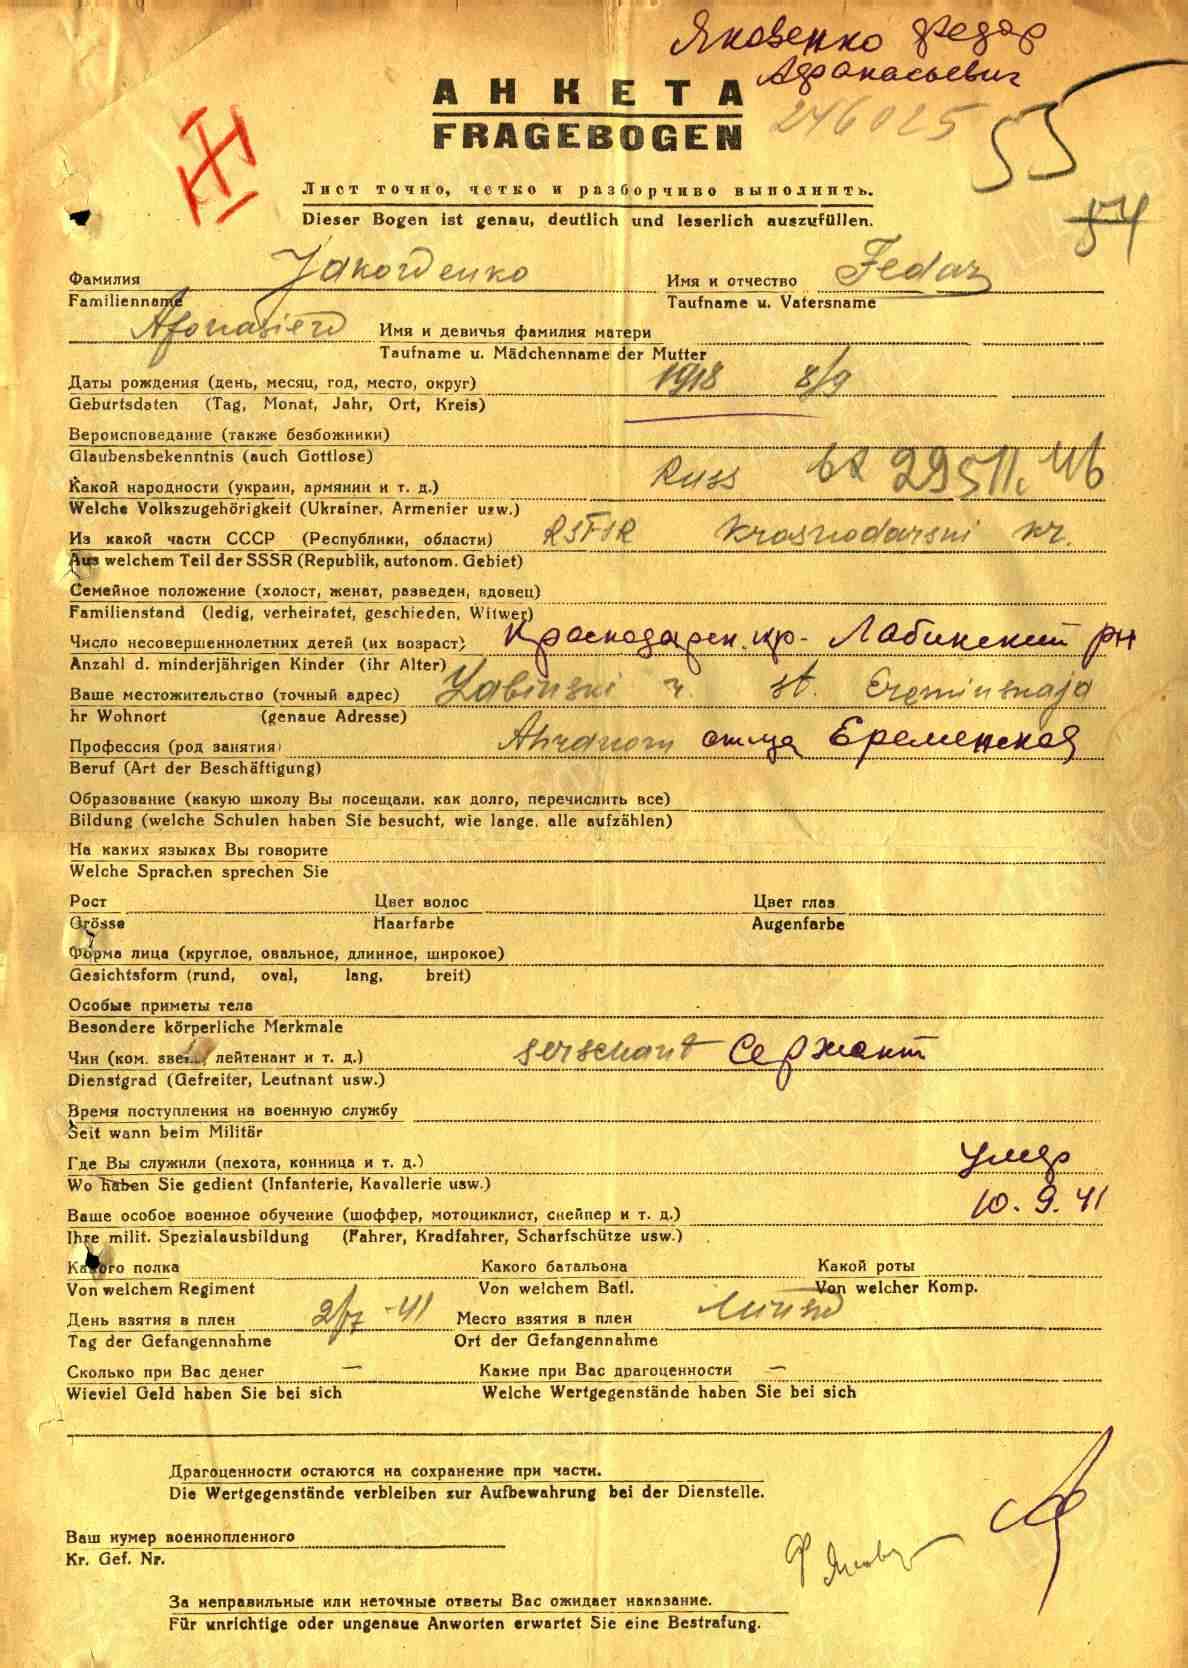 Яковенко Федор
Афанасьевич
АНКЕТА
FRAGEBOGEN
246025
55
54
Лист точно, четко и разборчиво выполнить.
Dieser Bogen ist genau, deutlich und leserlich auszufüllen.
Фамилия Jakowenko Имя и отчество Fedor
Familienname Taufname u. Vatersname
Afonasiew Имя и девичья фамилия матери
Taufname u. Mädchenname der Mutter
Даты рождения (день, месяц, год, место, округ) 1918 8/9
Geburtsdaten (Tag, Monat, Jahr, Ort, Kreis)
Вероисповедание (также безбожники)
Glaubensbekenntnis (auch Gottlose)
Какой народности (украин, армянин и т. д.) Russ
Welche Volkszugehörigkeit (Ukrainer, Armenier usw.)
Из какой части СССР (Республики, области) RSFSR Krasnodarski kr.
Aus welchem Teil der SSSR (Republik, autonom. Gebiet)
Семейное положение (холост, женат, разведен, вдовец)
Familienstand (ledig, verheiratet, geschieden, Witwer)
Число несовершеннолетних детей (их возраст) Краснодарск. кр- Лабинский рн
Anzahl d. minderjährigen Kinder (ihr Alter)
Ваше местожительство (точный адрес) Labinski r. st. Ereminskaja
hr Wohnort (genaue Adresse)
Профессия (род занятия) Еременская
Beruf (Art der Beschäftigung)
Образование (какую школу Вы посещали, как долго, перечислить все)
Bildung (welche Schulen haben Sie besucht, wie lange, alle aufzählen)
На каких языках Вы говорите
Welche Sprachen sprechen Sie
Рост Цвет волос Цвет глаз
Grösse Haarfarbe Augenfarbe
Форма лица (круглое, овальное, длинное, широкое)
Gesichtsform (rund, oval, lang, breit)
Особые приметы тела
Besondere körperliche Merkmale
Чин (ком. лейтенант и т. д.) serschant Сержант
Dienstgrad (Gefreiter, Leutnant usw.)
Время поступления на военную службу
Seit wann beim Militär
Где Вы служили (пехота, конница и т. д.) умер
Wo haben Sie gedient (Infanterie, Kavallerie usw.) 10.9.41
Ваше особое военное обучение (шоффер, мотоциклист, снейпер и т. д.)
Ihre milit. Spezialausbildung (Fahrer, Kradfahrer, Scharfschütze usw.)
Какого полка Какого батальона Какой роты
Von welchem Regiment Von welchem Batl. Von welcher Komp.
День взятия в плен 2/7-41 Место взятия в плен
Tag der Gefangennahme Ort der Gefangennahme
Сколько при Вас денег — Какие при Вас драгоценности —
Wieviel Geld haben Sie bei sich Welche Wertgegenstände haben Sie bei sich
Драгоценности остаются на сохранение при части.
Die Wertgegenstände verbleiben zur Aufbewahrung bei der Dienstelle.
Ваш нумер военнопленного
Kr. Gef. Nr.
За неправильные или неточные ответы Вас ожидает наказание.
Für unrichtige oder ungenaue Anworten erwartet Sie eine Bestrafung.